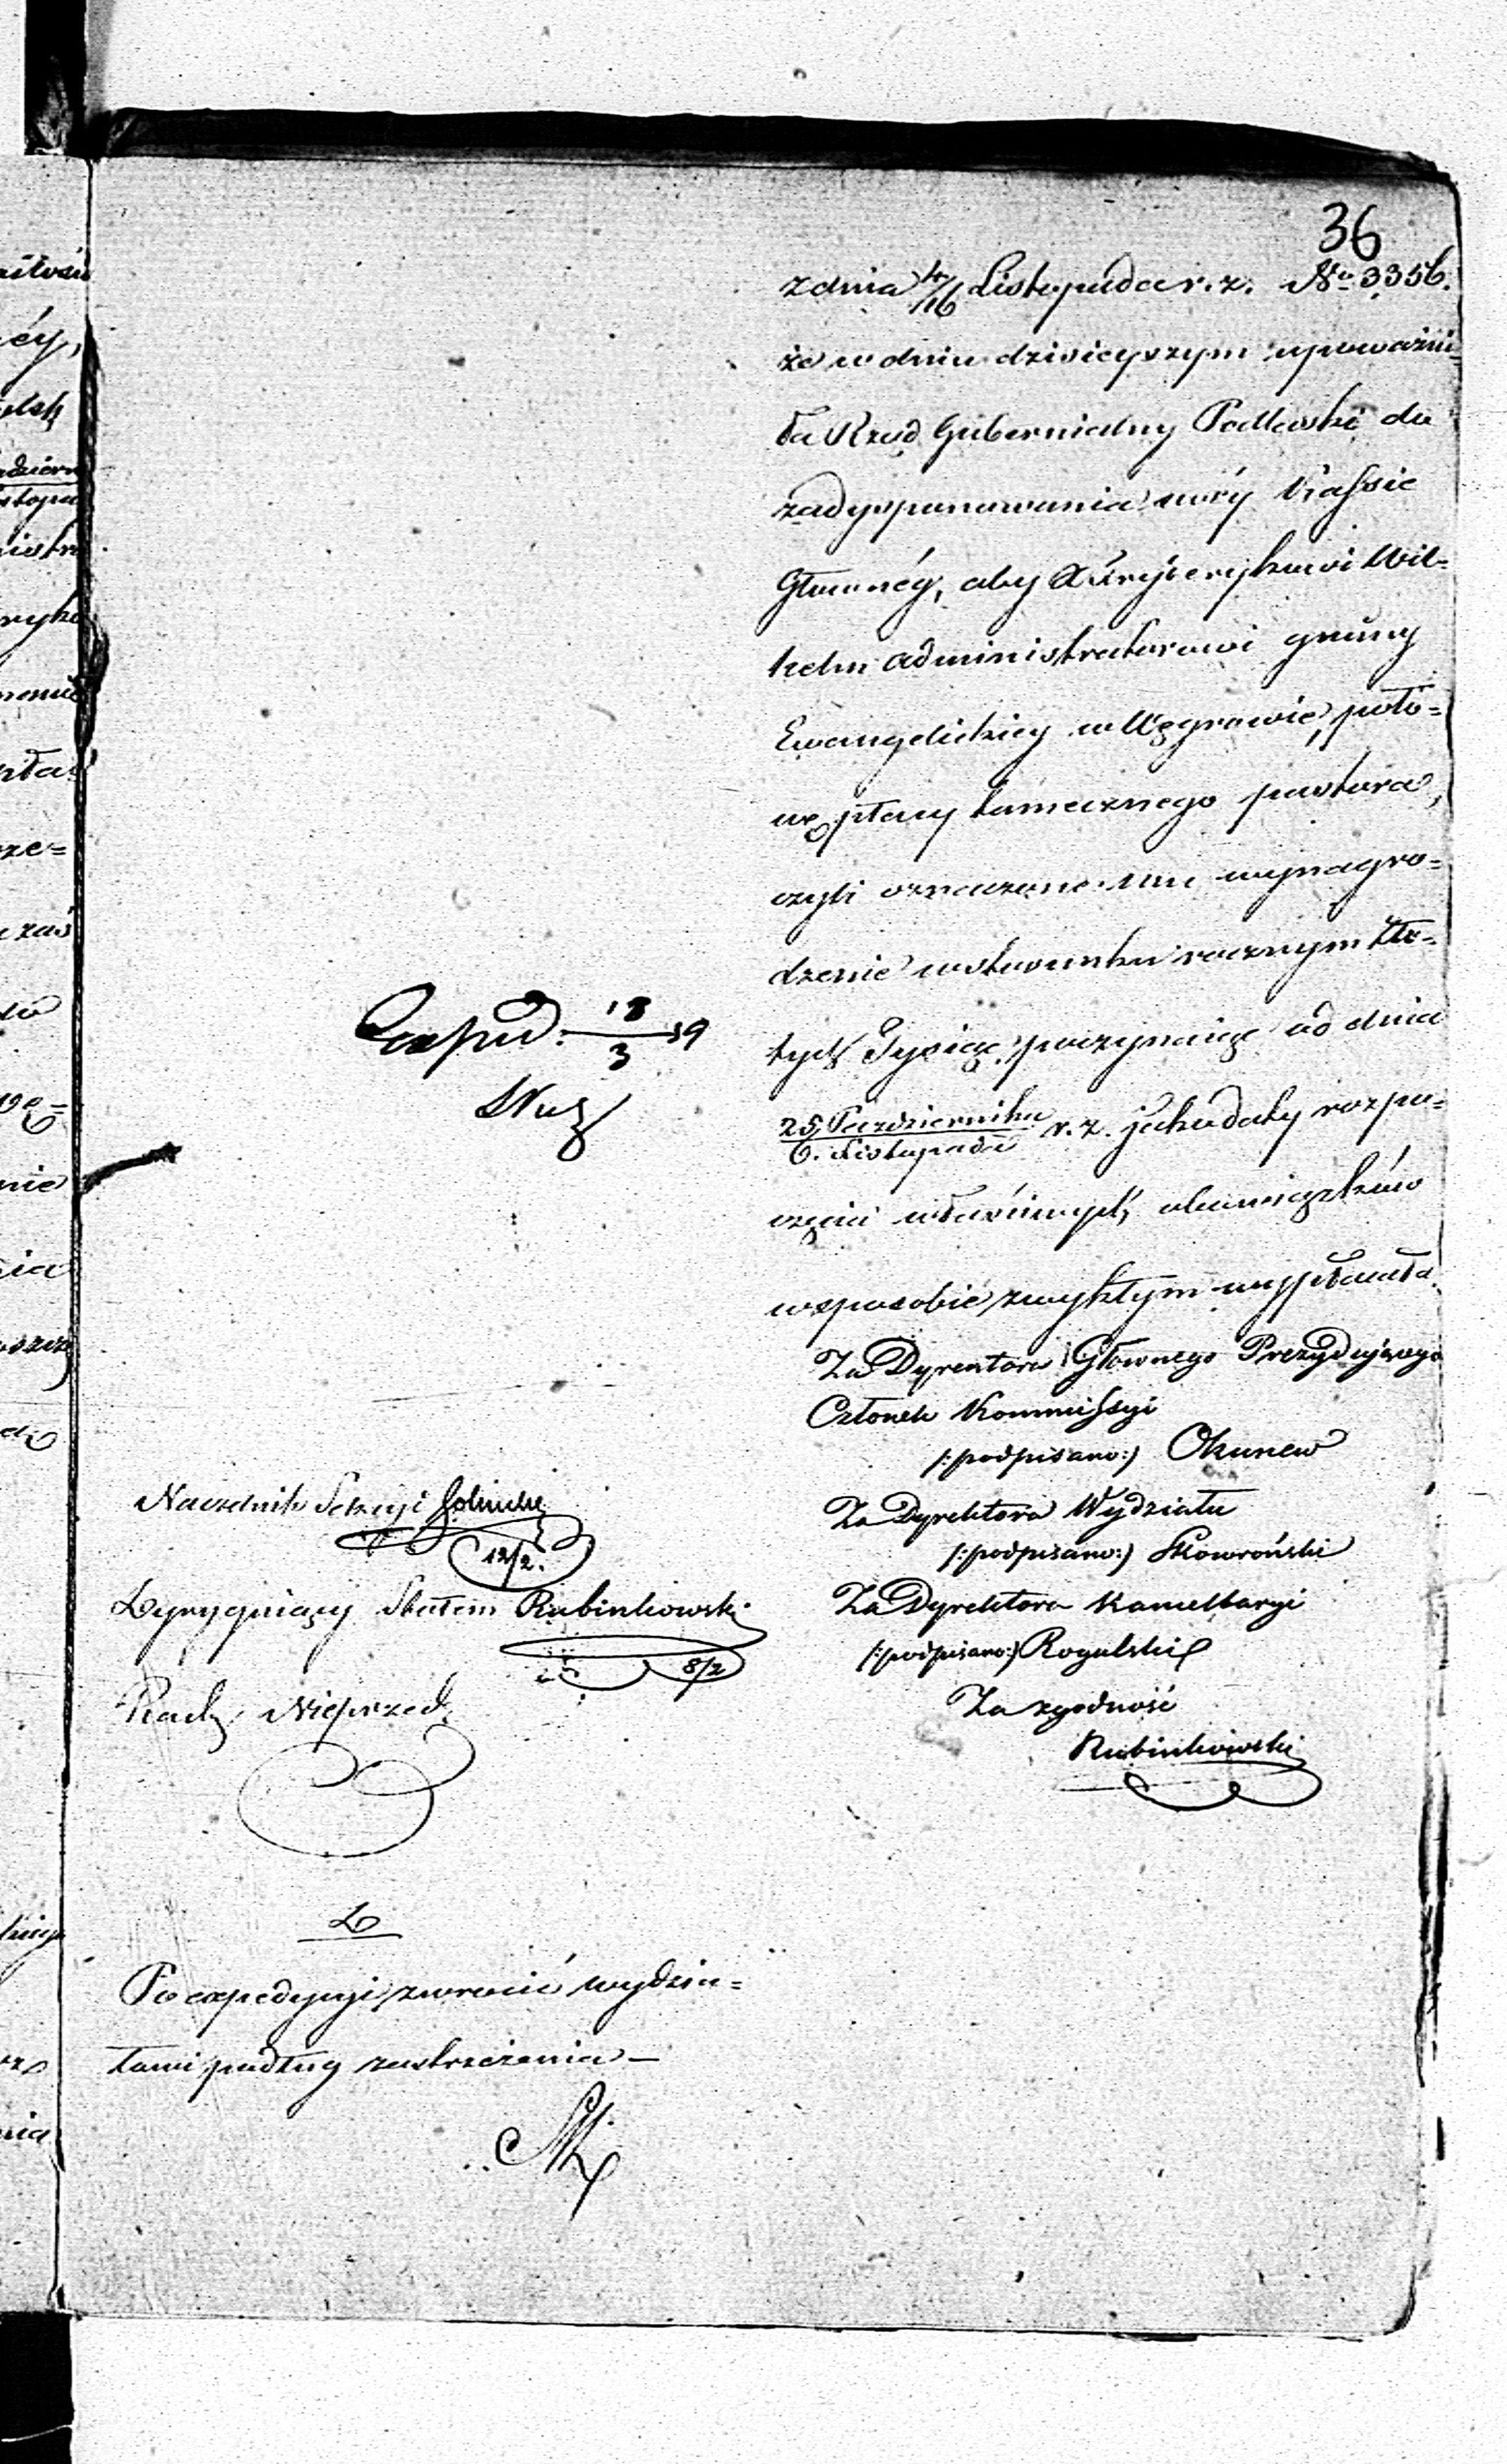 36
z dnia 4/16 Listopada r. z. No 3356.
że w dniu dzisieyszym upoważni-
ła Rząd Gubernialny Podlaski do
zadysponowania swéy Kassie
Głownéy, aby Xiężykowi Wil-
helm administratorowi gminy
Ewangelickiey w Węgrowie, poło-
wę płacy tamecznego pastora,
czyli oznaczone mu wynagro-
dzenie w stosunku rocznym Zło-
tych Tysiąc, poczynaiąc od dnia
25 Pazdziernika
6. Listopada r. z. jako daty rozpo-
częcia właściwych obowiązków
w sposobie zwykłym wypłacała.
Za Dyrektora Głownego Prezyduiącego
Członek Kommissyi
/:podpisano:/ Okunew
Za Dyrektora Wydziału
/:podpisano:/ Skowroński
Za Dyrektora Kancellaryi
/:podpisano:/ Rogulski
Za zgodność
Rubinkowski
Exped. 18/3 39
Naczelnik Sekcyi
12/2.
Dyryguiący Stołem Rubinkowski
8/2
Po expedycyi zwrócić wydzia-
łowi podług zastrzeżenia —